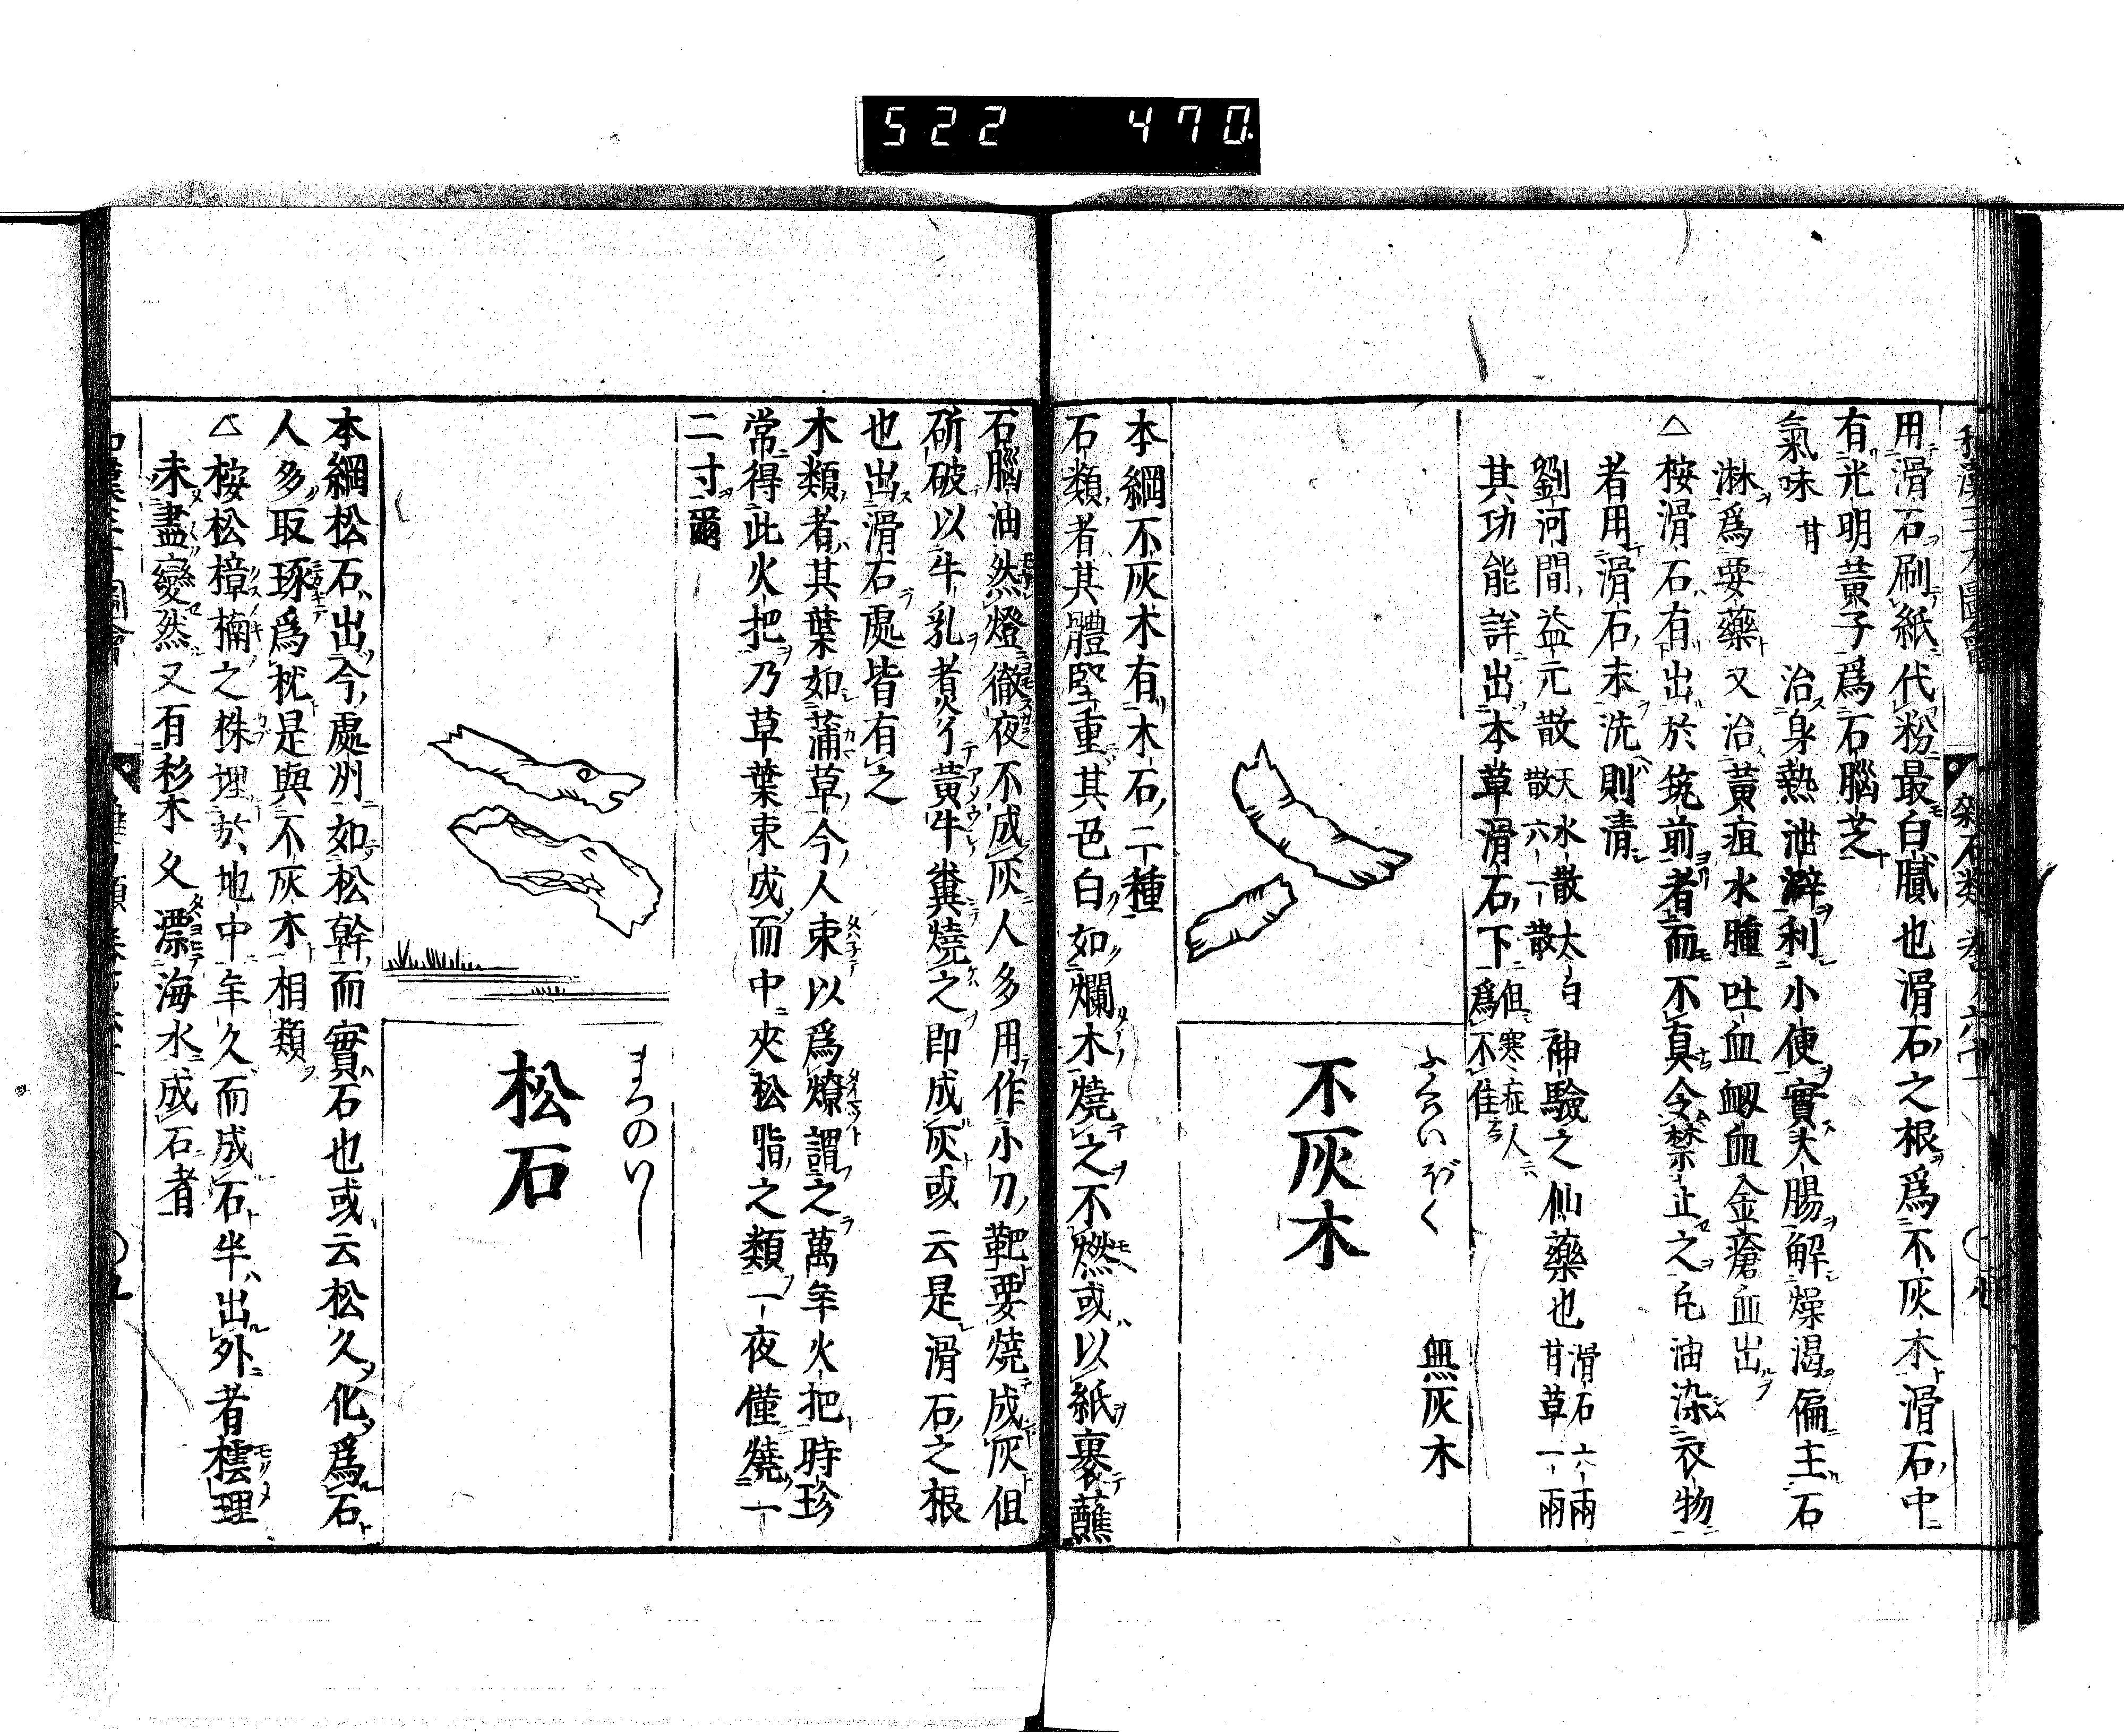 522 470
用滑石刷紙代粉最白膩也滑石之根爲不灰木滑石中
有光明黃子爲石腦芝
氣味甘 治身熱泄澼利小便實大腸解燥渴偏主石
淋爲要藥又治黃疸水腫吐血衂血金瘡血出
△桉滑石有出於筑前者而不真令禁止之凡油染衣物
者用滑石末洗則清
劉河間益元散 天水散太白散六一散 神驗之仙藥也 滑石六兩甘草一兩
其功能詳出本草滑石下 但寒症人爲不佳
不灰木
無灰木
本綱不灰木有木石二種
石類者其體堅重其色白如爛木燒之不燃或以紙裹蘸
石腦油然燈徹夜不成灰人多用作小刀靶要燒成灰但
斫破以牛乳煑了黃牛糞燒之即成灰或云是滑石之根
也出滑石處皆有之
木類者其葉如蒲草今人束以爲燎謂之萬年火把時珍
常得此火把乃草葉束成而中夾松脂之類一夜僅燒一
二寸爾
まつのいし
松石
本綱松石出今處州如松幹而實石也或云松久化爲石
人多取琢爲枕是與不灰木相類
△桉松樟楠之株埋於地中年久而成石半出外者橒理
未盡變然又有杉木久漂海水成石者